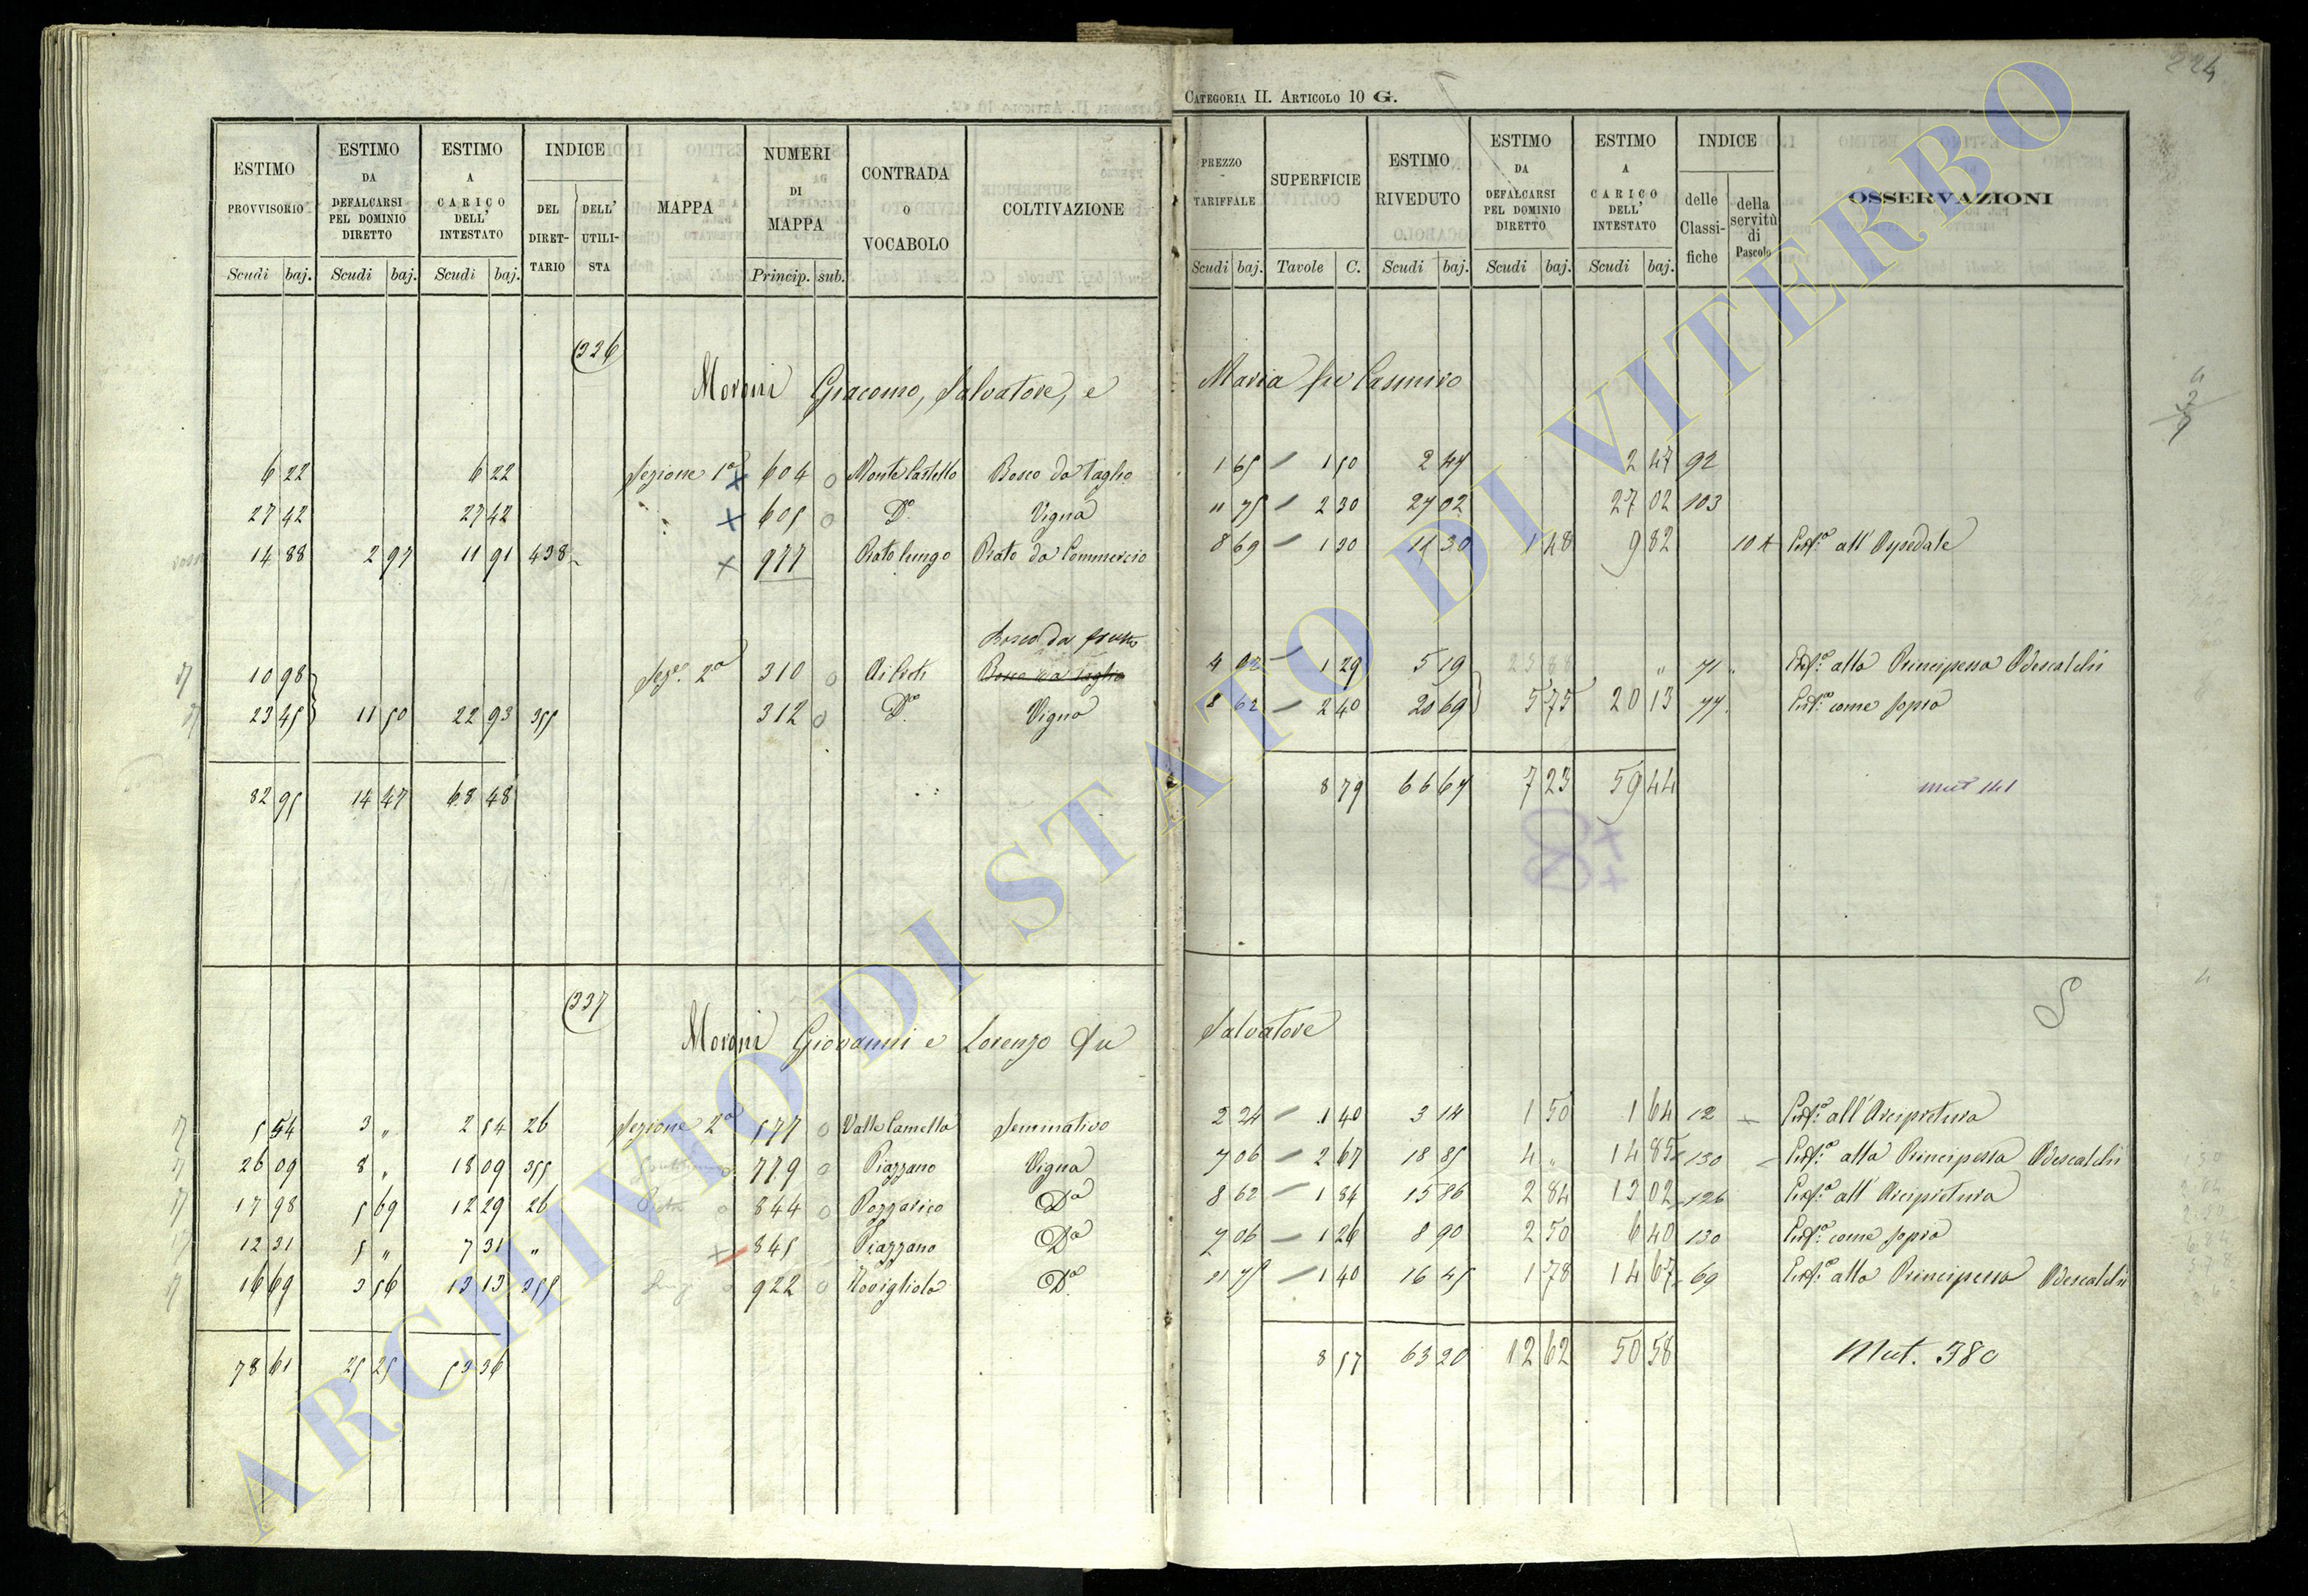 224
CATEGORIA II. ARTICOLO 10 G.
ESTIMO PROVVISORIO
ESTIMO DA DEFALCARSI PEL DOMINIO DIRETTO
ESTIMO A CARICO DELL' INTESTATO
INDICE
DEL DIRETTARIO
DELL' UTILISTA
MAPPA
NUMERI DI MAPPA
CONTRADA O VOCABOLO
COLTIVAZIONE
PREZZO TARIFFALE
SUPERFICIE
ESTIMO RIVEDUTO
ESTIMO DA DEFALCARSI PEL DOMINIO DIRETTO
ESTIMO A CARICO DELL' INTESTATO
INDICE
delle Classifiche
della servitù di Pascolo
OSSERVAZIONI
Scudi baj. Scudi baj. Scudi baj. Princip. sub. Scudi baj. Tavole C. Scudi baj. Scudi baj. Scudi baj.
326
Moroni Giacomo, Salvatore, e Maria fu Casimiro
6 22 6 22 Sezione 1a 604 Monte Castello Bosco da taglio 1 65 1 50 2 47 2 47 92
27 42 27 42 605 Do Vigna 11 75 2 30 27 02 27 02 103
14 88 2 97 11 91 438 977 Prato lungo Prato da Commercio 8 69 1 30 11 30 1 48 9 82 Enfa all' Ospedale
Bosco da frutto
10 98 Seze 2a 310 Bosco da taglio 4 02 1 29 5 19 " 71 Enfa alla Principessa Odescalchi
23 45 11 50 22 93 355 312 Do Vigna 8 62 2 40 20 69 5 75 20 13 77 Enfa come sopra
82 95 14 47 68 48 8 79 66 67 7 23 59 44
mut 141
337
Moroni Giovanni e Lorenzo fu Salvatore
5 54 3 " 2 54 26 Sezione 2a 577 Valle Camella Seminativo 2 24 1 40 3 14 1 50 1 64 12 Enfa all' Arcipretura
26 09 8 " 18 09 355 779 Piazzano Vigna 7 06 2 67 18 85 4 " 14 85 130 Enfa alla Principessa Odescalchi
17 98 5 69 12 29 26 844 Pozzarico Da 8 62 1 84 15 86 2 84 13 02 126 Enfa all' Arcipretura
12 31 5 " 7 31 " 845 Piazzano Da 7 06 1 26 8 90 2 50 6 40 130 Enfa come sopra
16 69 3 56 13 13 355 922 Rovigliola Da 11 75 1 40 16 45 1 78 14 67 69 Enfa alla Principessa Odescalchi
78 61 25 25 53 36 8 57 63 20 12 62 50 58
Mut. 380
ARCHIVIO DI STATO DI VITERBO